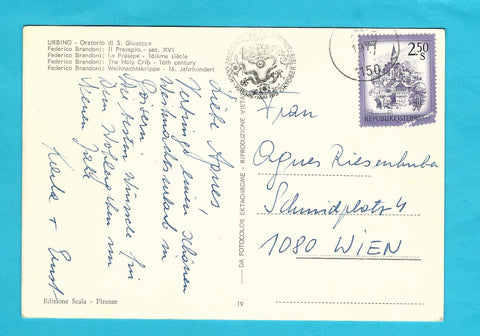 URBINO - Oratorio di S. Giuseppe
Federico Brandoni: Il Presepio - sec. XVI
Federico Brandoni: La Crèche - 16ième siècle
Federico Brandoni: The Holy Crib - 16th century
Federico Brandoni: Weihnachtskrippe - 16. Jahrhundert
Liebe Agnes!
Verbringe einen schönen
Weihnachtsurlaub in
Bayern.
Die besten Wünsche für
Dein Wohlergehen im
Neuen Jahr
Karla + Ernst
Edizione Scala - Firenze
19
DA FOTOCOLOR EKTACHROME - RIPRODUZIONE VIETATA
1977
150
2.50
S
REPUBLIK ÖSTERREICH
Frau
Agnes Riesenhuber
Schmidplatz 4
1080 WIEN